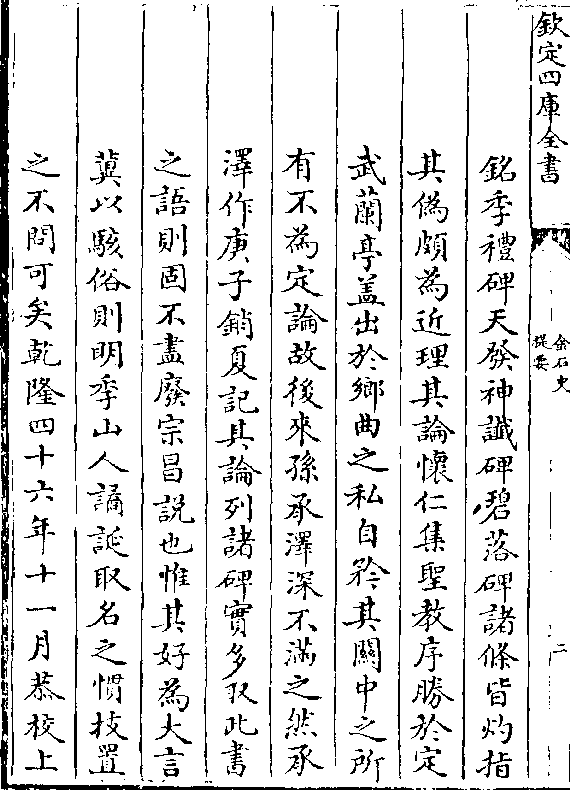 欽定四庫全書
金石史
提要
二
銘季禮碑天發神讖碑碧落碑諸條皆灼指
其偽頗為近理其論懷仁集聖教序勝於定
武蘭亭盖出於鄉曲之私自矜其關中之所
有不為定論故後來孫承澤深不滿之然承
澤作庚子銷夏記其論列諸碑實多取此書
之語則固不盡廢宗昌説也惟其好為大言
冀以駭俗則明季山人譎誕取名之慣技置
之不問可矣乾隆四十六年十一月恭校上